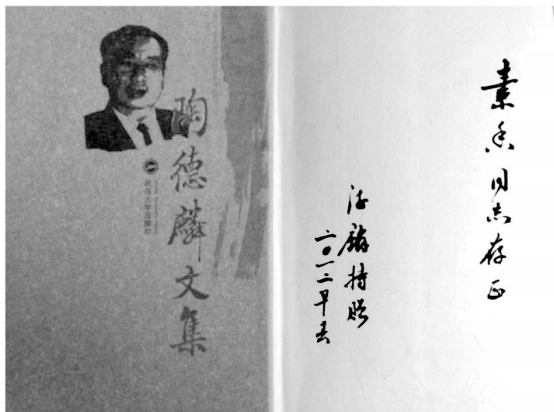 陶德麟文集
武汉大学出版社
素香同志存正
德麟持赠
二〇一二早春